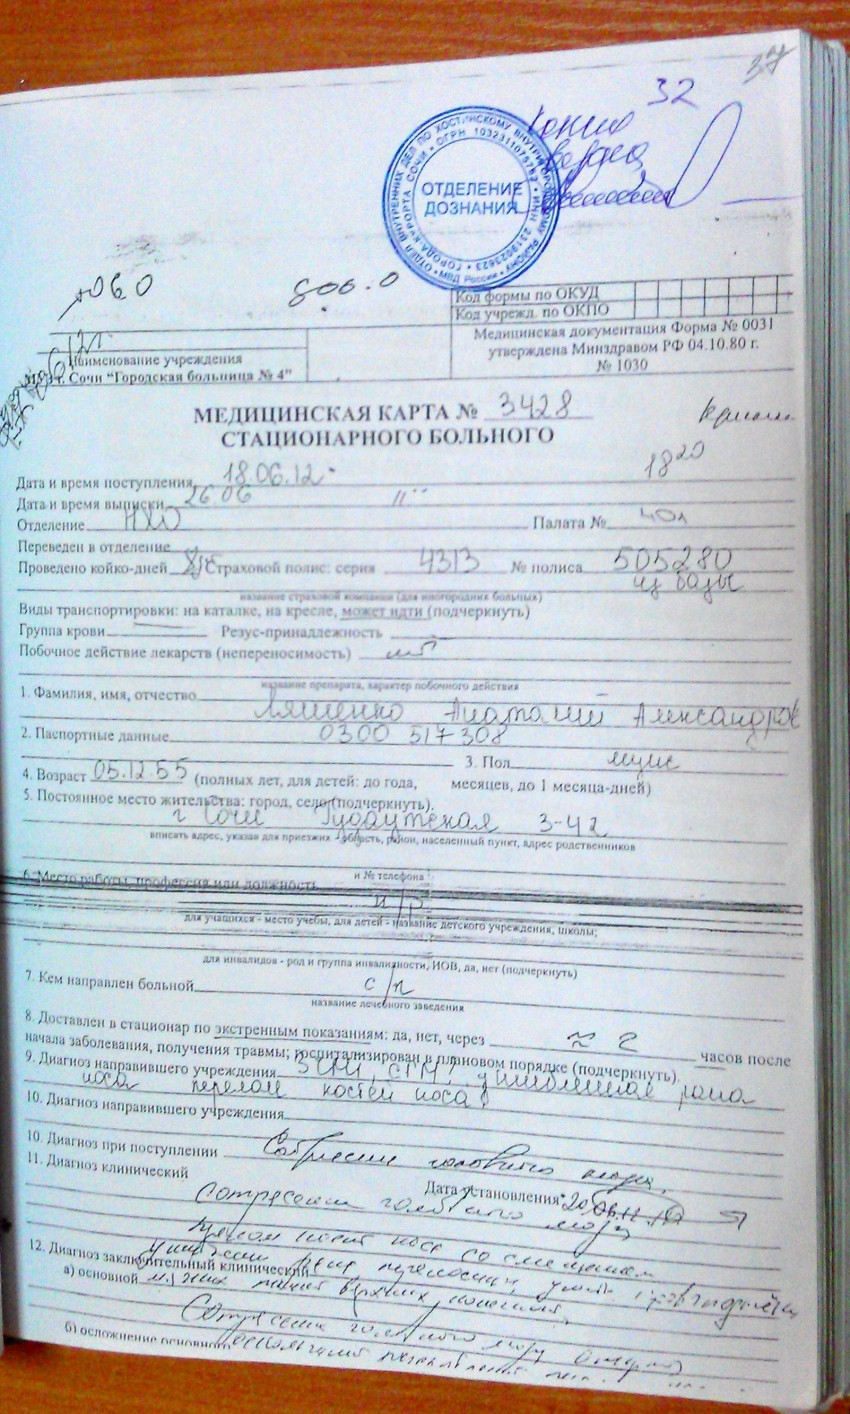 37
32
копия
верна
ОТДЕЛ ВНУТРЕННИХ ДЕЛ ПО ХОСТИНСКОМУ ВНУТРИГОРОДСКОМУ РАЙОНУ
ГОРОДА-КУРОРТА СОЧИ • ОГРН
МВД России
ОТДЕЛЕНИЕ
ДОЗНАНИЯ
Код формы по ОКУД
Код учрежд. по ОКПО
Медицинская документация Форма № 0031
утверждена Минздравом РФ 04.10.80 г.
№ 1030
Наименование учреждения
г. Сочи "Городская больница № 4"
МЕДИЦИНСКАЯ КАРТА № 3428
СТАЦИОНАРНОГО БОЛЬНОГО
Дата и время поступления 18.06.12. 18 20
Дата и время выписки 26.06 11
Отделение НХО Палата № 401
Переведен в отделение
Проведено койко-дней Страховой полис: серия 4313 № полиса 505280
из базы
название страховой компании (для иногородних больных)
Виды транспортировки: на каталке, на кресле, может идти (подчеркнуть)
Группа крови Резус-принадлежность
Побочное действие лекарств (непереносимость) нет
название препарата, характер побочного действия
1. Фамилия, имя, отчество
Ляшенко Анатолий Александров
2. Паспортные данные 0300 517308
3. Пол муж
4. Возраст 05.12.55 (полных лет, для детей: до года, месяцев, до 1 месяца-дней)
5. Постоянное место жительства: город, село (подчеркнуть).
г Сочи Гудаутская 3-42
вписать адрес, указав для приезжих - область, район, населенный пункт, адрес родственников
и № телефона
6. Место работы, профессия или должность
н/р
для учащихся - место учебы, для детей - название детского учреждения, школы;
для инвалидов - род и группа инвалидности, ИОВ, да, нет (подчеркнуть)
7. Кем направлен больной с/п
название лечебного заведения
8. Доставлен в стационар по экстренным показаниям: да, нет, через ≈ 2 часов после
начала заболевания, получения травмы; госпитализирован в плановом порядке (подчеркнуть).
9. Диагноз направившего учреждения ЗЧМТ, СГМ? ушибленная рана
носа перелом костей носа?
10. Диагноз направившего учреждения
10. Диагноз при поступлении Сотрясение головного мозга.
11. Диагноз клинический Дата установления:
Сотрясение головного мозга
перелом костей носа со смещением
12. Диагноз заключительный клинический
а) основной
Сотрясение головного мозга
б) осложнение основного